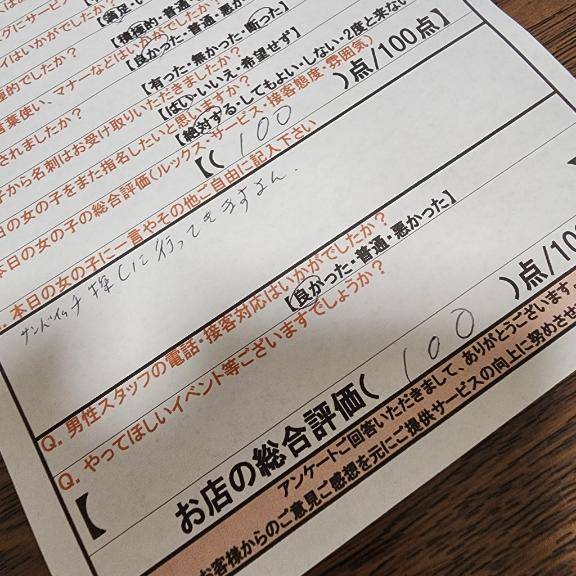 グにサービス
【満足・い
イはいかがでしたか
【積極的・普通・悪か
極的でしたか?
【良かった・普通・悪かった】
言葉使い、マナーなどはいかがでしたか
【有った・無かった・断った】
されましたか?
【はい・いいえ・希望せず】
子から名刺はお受け取りいただきましたか?
【絶対する・してもよい・しない・2度と来ない
日の女の子をまた指名したいと思いますか?
本日の女の子の総合評価(ルックス・サービス・接客態度・雰囲気)
【( 100 )点/100点】
本日の女の子に一言やその他ご自由に記入下さい
サンドイッチ探しに行ってきますよん.
Q. 男性スタッフの電話・接客対応はいかがでしたか?
【良かった・普通・悪かった】
Q. やってほしいイベント等ございますでしょうか?
【お店の総合評価( 100 )点/100
アンケートご回答いただきまして、ありがとうございます
お客様からのご意見ご感想を元にご提供サービスの向上に努めさせ